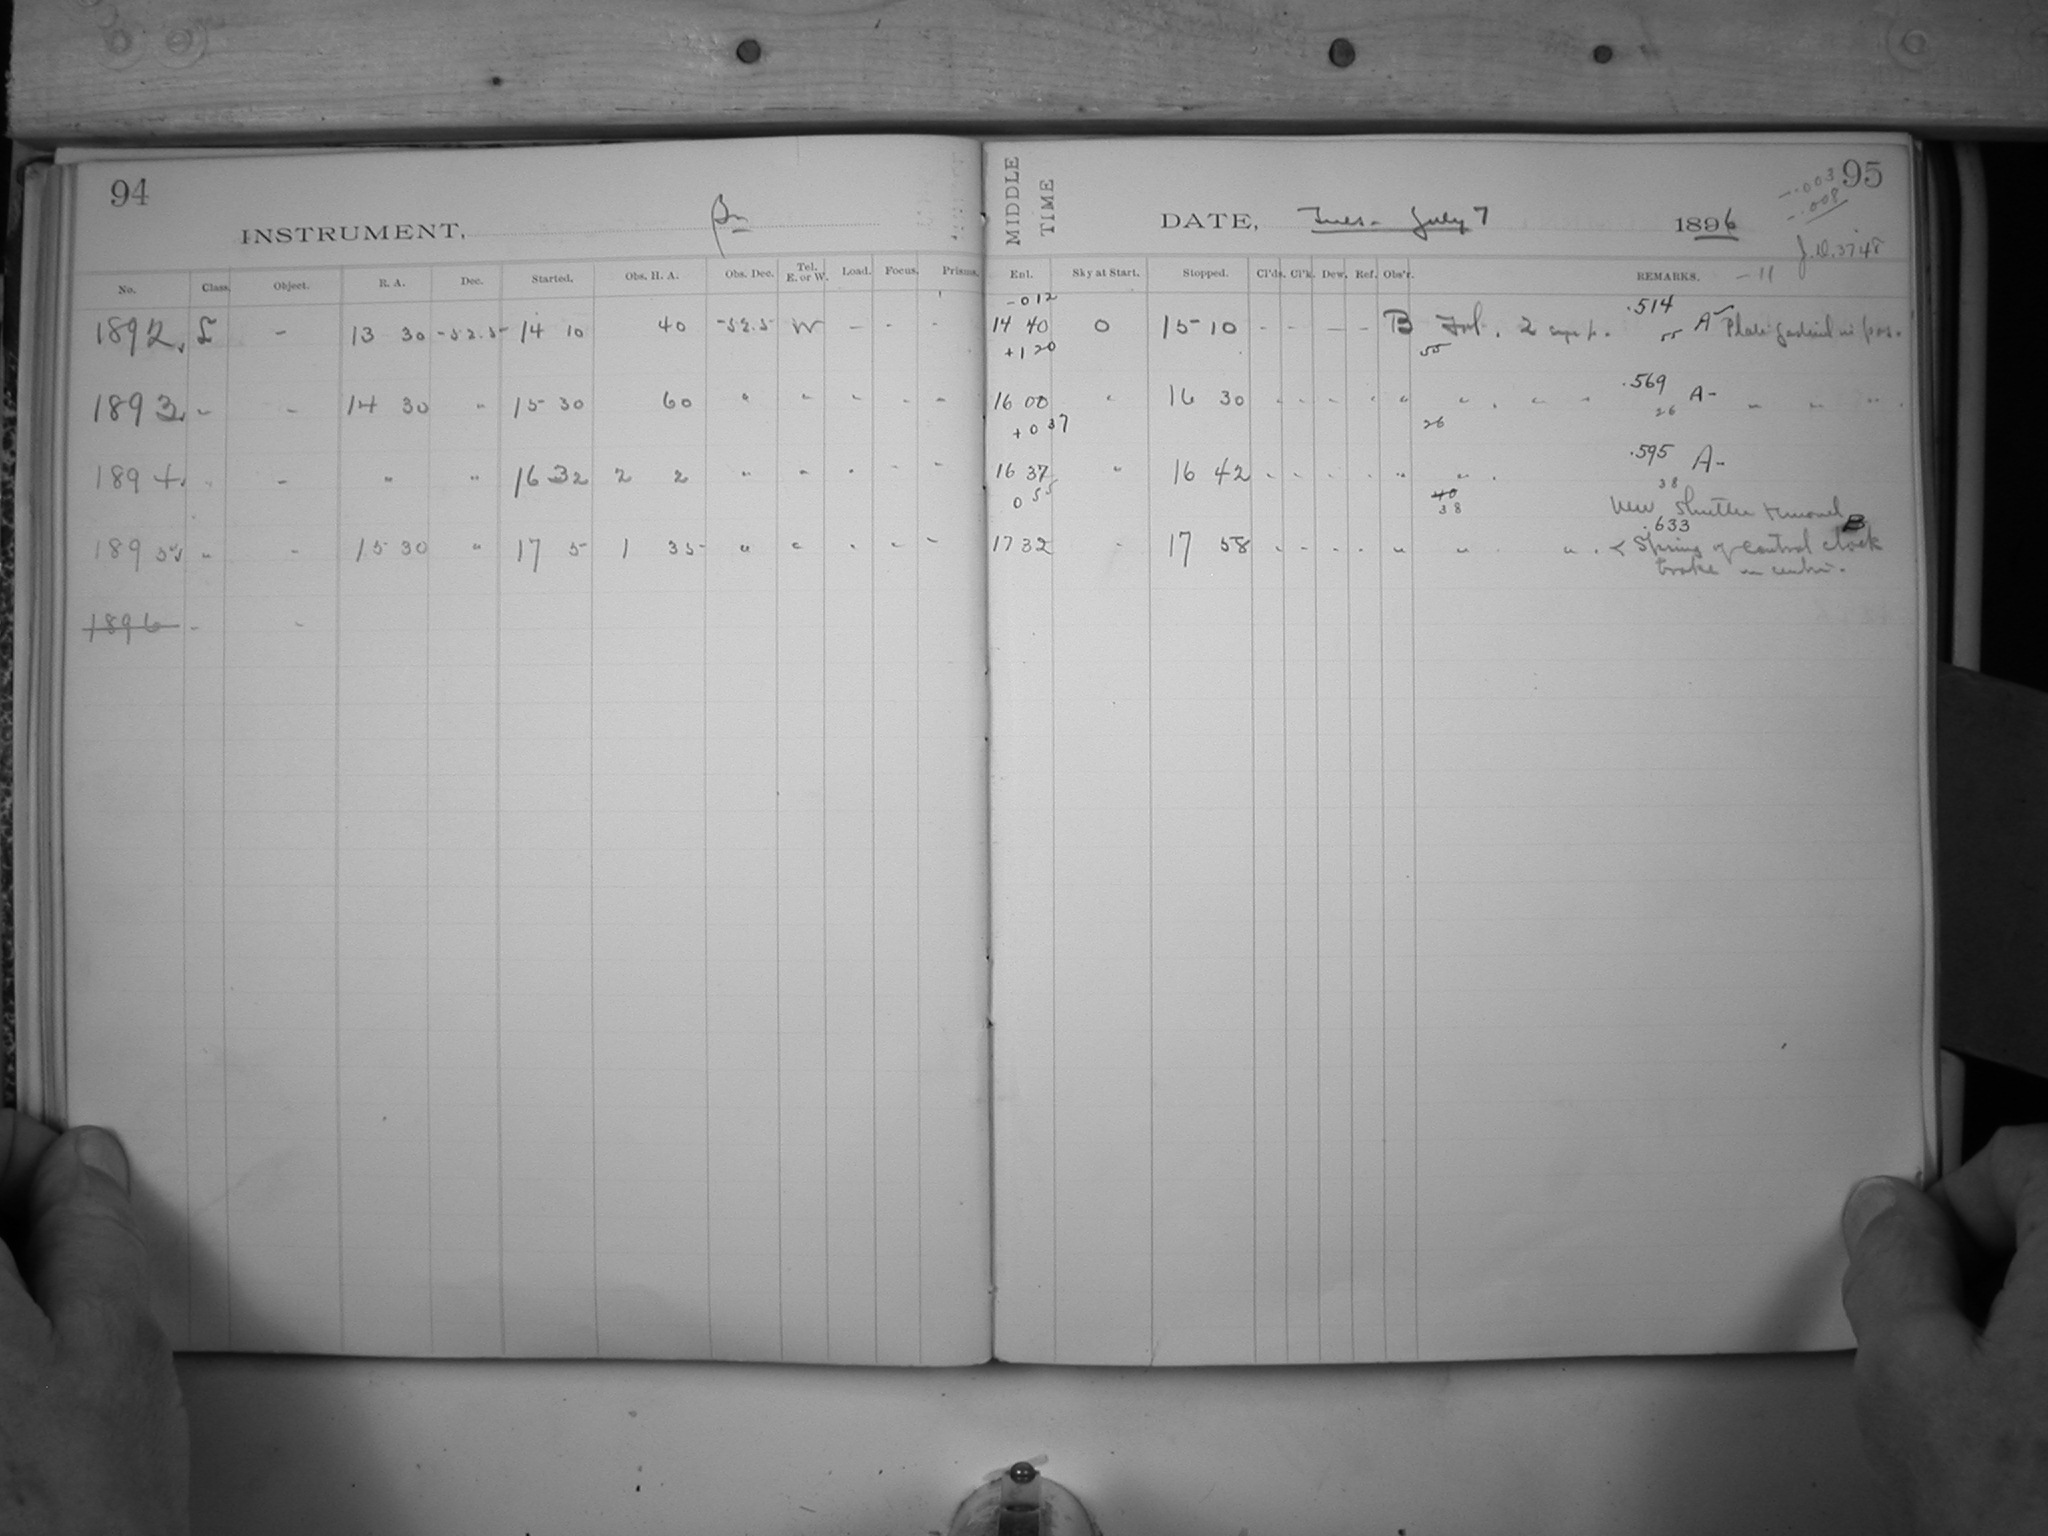 94
INSTRUMENT,
No. Class. Object. R. A. Dec. Started. Obs. H. A. Obs. Dec. Tel. E. or W. Load. Focus. Prisms.
1892. L - 13 30 -52.5 14 10 40 -52.5 W - - -
1893. " - 14 30 " 15 30 60 " " " " "
1894. " - " " 16 32 2 2 " " " " "
1895. " - 15 30 " 17 5 1 35 " " " " "
1896 - -
95
MIDDLE TIME
DATE, Tues. July 7 1896
-.003
-.008
-11
J.D. 3748
Enl. Sky at Start. Stopped. Cl'ds. Cl'k. Dew. Ref. Obs'r. REMARKS.
-012
14 40 0 15 10 - - - - B 2 .514 A Plate in pos.
+1 20 55 55
16 00 " 16 30 " " " " " " " " .569 A- " " "
+0 37 26 26
16 37 " 16 42 " " " " " " .595 A-
0 55 40 38 38
New Shutter removed
17 32 " 17 58 " " " " " " " .633 B
< Spring of control clock
broke in centre.